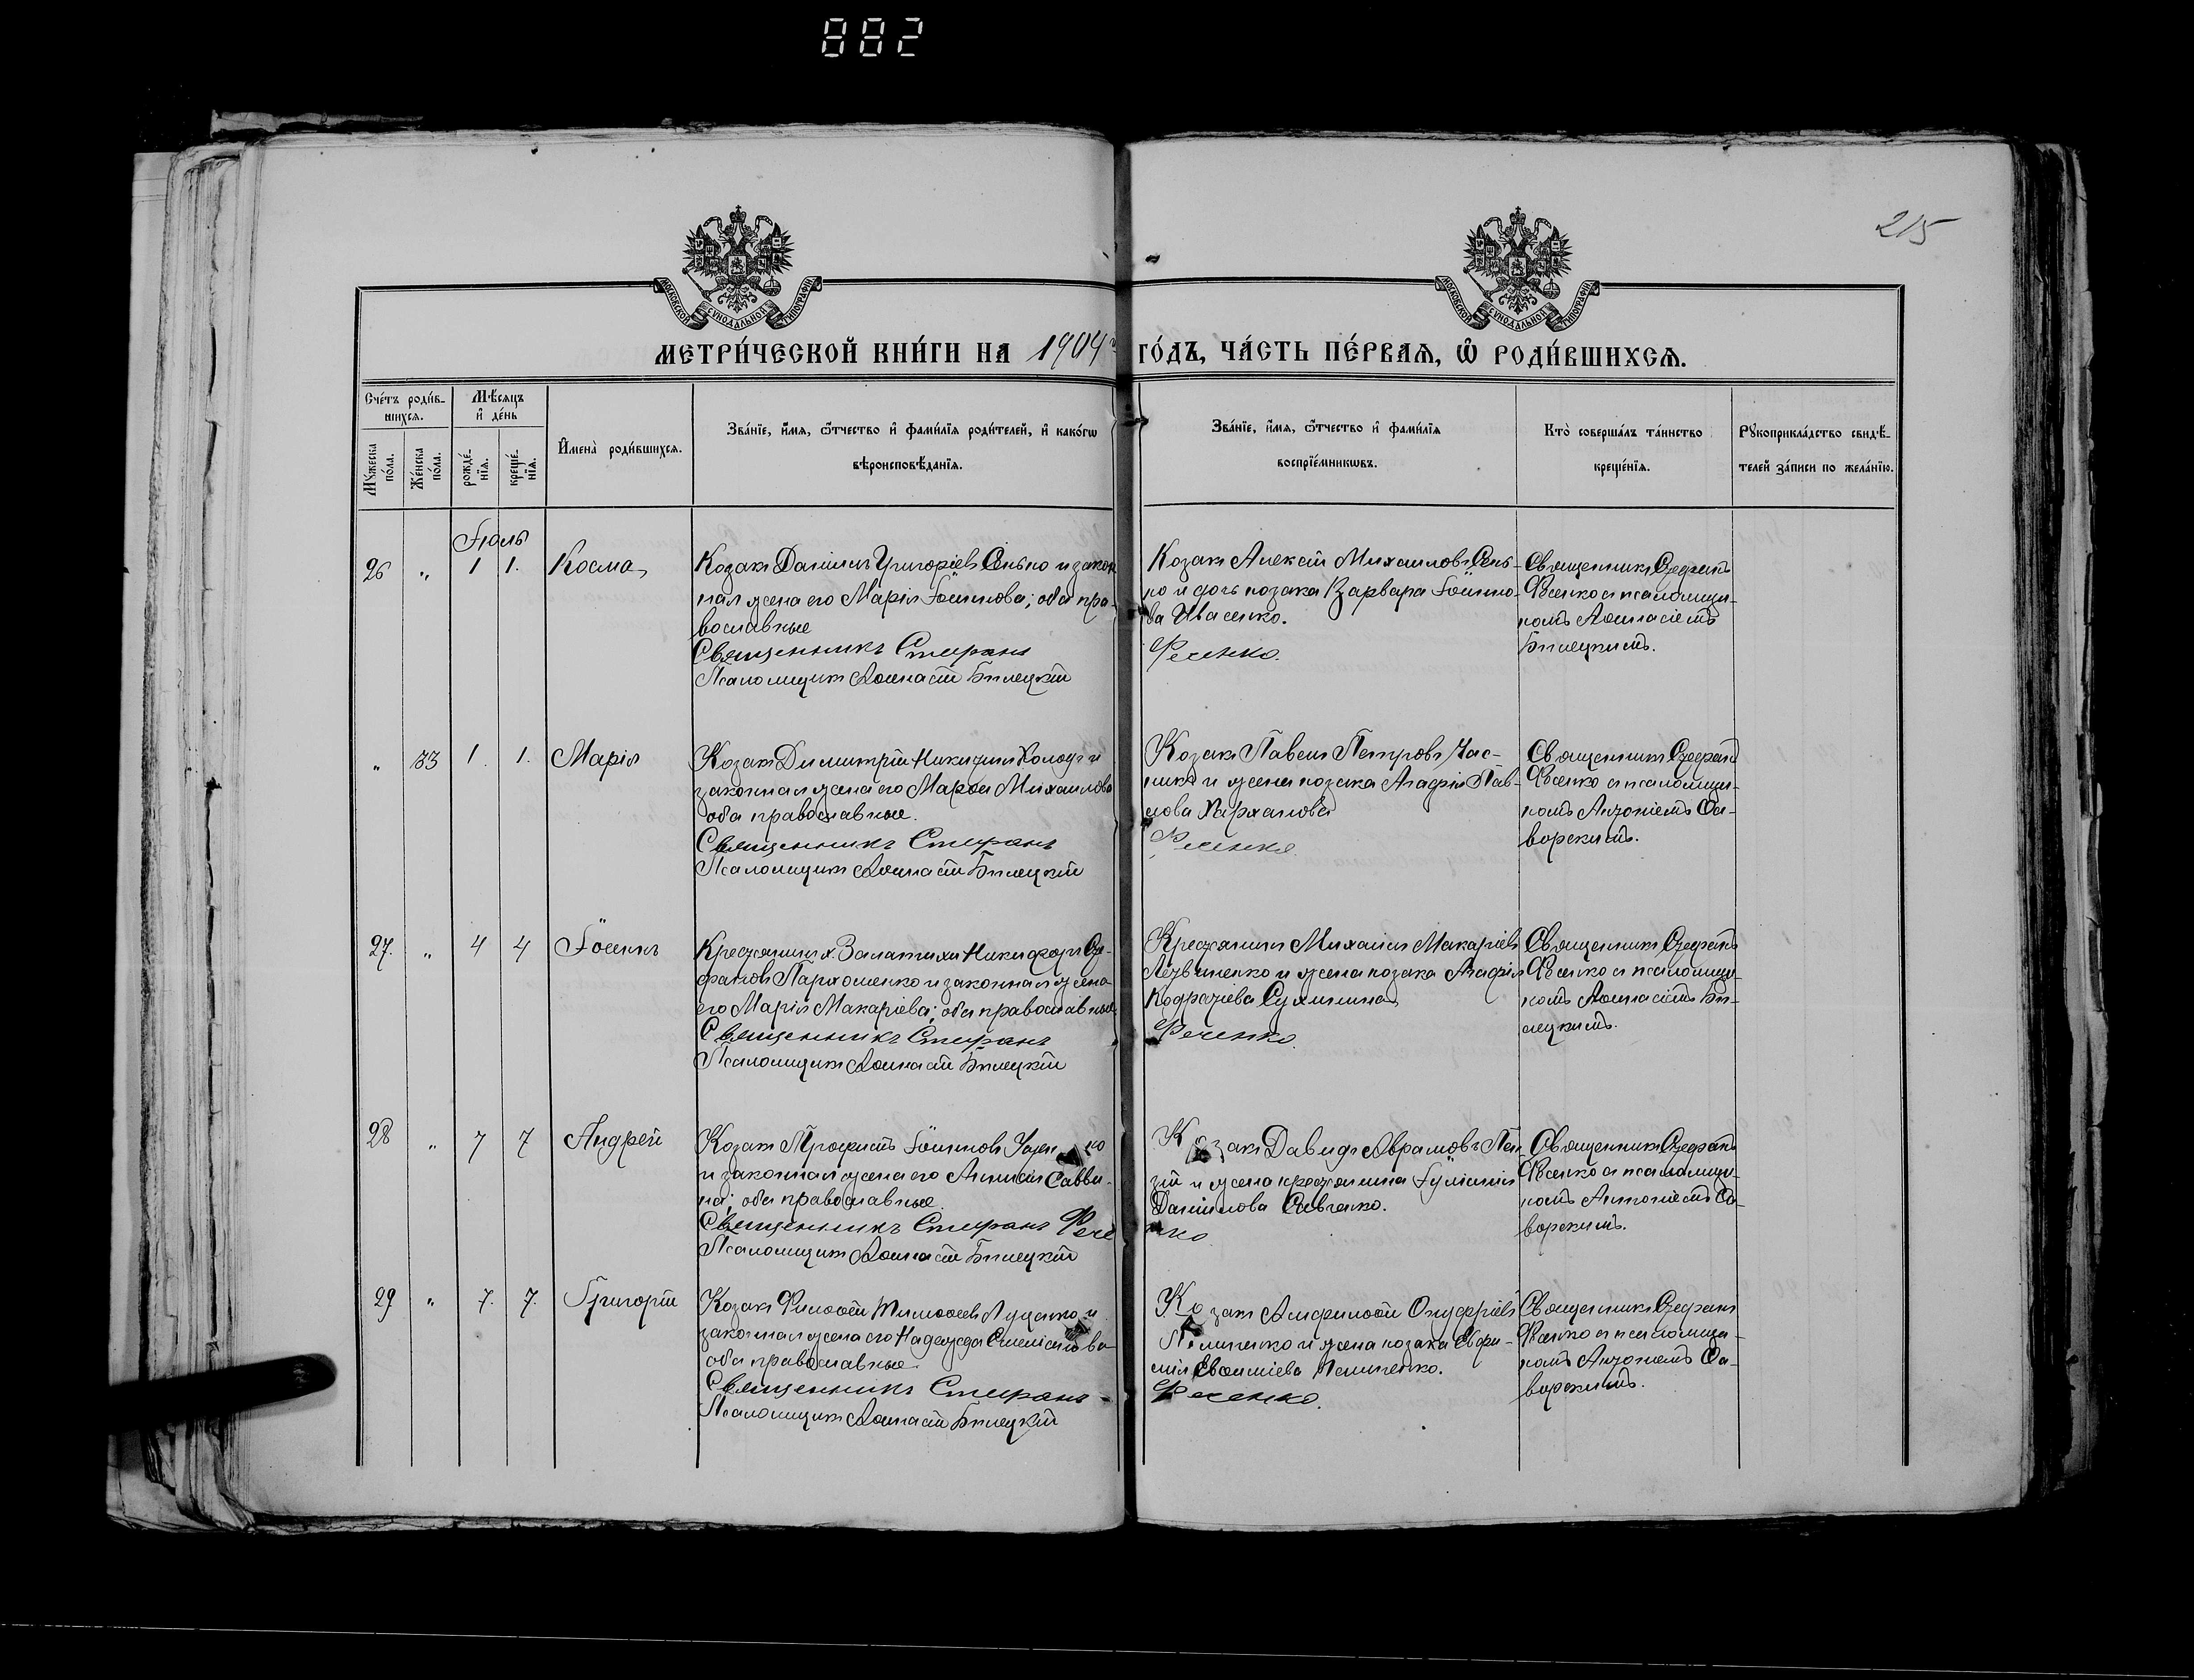 882
215
МОСКОВСКОЙ СѴНОДАЛЬНОЙ ТИПОГРАФІИ
МОСКОВСКОЙ СѴНОДАЛЬНОЙ ТИПОГРАФІИ
МЕТРИ́ЧЕСКОЙ КНИ́ГИ НА 1904 г ГО́ДЪ, ЧА́СТЬ ПЕ́РВАѦ, Ѽ РОДИ́ВШИХСѦ.
Сче́тъ роди́в-
шихся.
Мѣ́сяцъ
и҆ де́нь
Мꙋжеска по́ла.
Же́нска по́ла.
рожде́-
нїѧ.
креще́-
нїѧ.
И҆мена̀ роди́вшихсѧ.
Зва́нїе, и҆́мѧ, ѻ҆́тчество и҆ фами́лїѧ роди́телей, и҆ како́гѡ
вѣроисповѣ́данїѧ.
Зва́нїе, и҆́мѧ, ѻ҆́тчество и҆ фами́лїѧ
воспрїе́мникѡвъ.
Кто̀ соверша́лъ та́инство
креще́нїѧ.
Рꙋкоприкла́дство свидѣ́-
телей за́писи по жела́нїю.
Іюль
26 " 1 1. Косма
Козакъ Даніилъ Григоріевъ Сенько и закон
ная жена его Марія Іоаннова; оба пра-
вославные
Священникъ Стефанъ
Псаломщикъ Аѳанасій Билецкій
Козакъ Алексій Михаиловъ Сень-
ко и дочь козака Варвара Іоанно-
ва Ивасенко.
Фесенко.
Священникъ Стефанъ
Фесенко съ псаломщи-
комъ Аѳанасіемъ
Билецкимъ.
" 33 1. 1. Марія
Козакъ Димитрій Никитинъ Холодъ и
законная жена его Марѳа Михаилова
оба православные.
Священникъ Стефанъ
Псаломщикъ Аѳанасій Билецкій
Козакъ Павелъ Петровъ Час-
никъ и жена козака Агафія Пав-
лова
Фесенко.
Священникъ Стефанъ
Фесенко съ псаломщи-
комъ Антоніемъ Са-
ворскимъ.
27. " 4 4 Іоаннъ
Крестьянинъ Никифоръ Сте-
фановъ Пархоменко и законная жена
его Марія Макаріева; оба православные
Священникъ Стефанъ
Псаломщикъ Аѳанасій Билецкій
Крестьянинъ Михаилъ Макаріевъ
и жена козака Агафія
Кодратіева
Фесенко.
Священникъ Стефанъ
Фесенко съ псаломщи-
комъ Аѳанасіемъ Би-
лецкимъ.
28 " 7 7 Андрей
Козакъ Іоанновъ
и законная жена его Савви-
на; оба православные.
Священникъ Стефанъ Фесе
Псаломщикъ Аѳанасій Билецкій
Козакъ Давидъ Аврамовъ
и жена крестьянина Іуліанія
Даніилова Савченко.
нко
Священникъ Стефанъ
Фесенко съ псаломщи-
комъ Антоніемъ Са-
ворскимъ.
29 " 7. 7. Григорій
Козакъ Тимоѳеевъ Луценко и
законная жена его Надежда
оба православные.
Священникъ Стефанъ -
Псаломщикъ Аѳанасій Билецкій
Козакъ Амфилохій Онуфріевъ
и жена козака Евфи-
мія Евѳиміева
Фесенко.
Священникъ Стефанъ
Фесенко съ псаломщи-
комъ Антоніемъ Са-
ворскимъ.